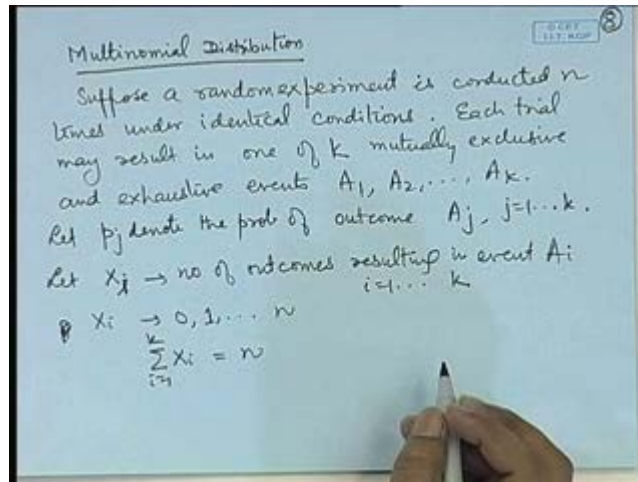 8
Multinomial Distribution
Suppose a random experiment is conducted n
times under identical conditions. Each trial
may result in one of k mutually exclusive
and exhaustive events A₁, A₂, ..., Aₖ.
Let pⱼ denote the prob of outcome Aⱼ, j=1...k.
Let Xᵢ → no of outcomes resulting in event Aᵢ
i=1... k
Xᵢ → 0, 1, ... n
∑ᵢ₌₁ᵏ Xᵢ = n